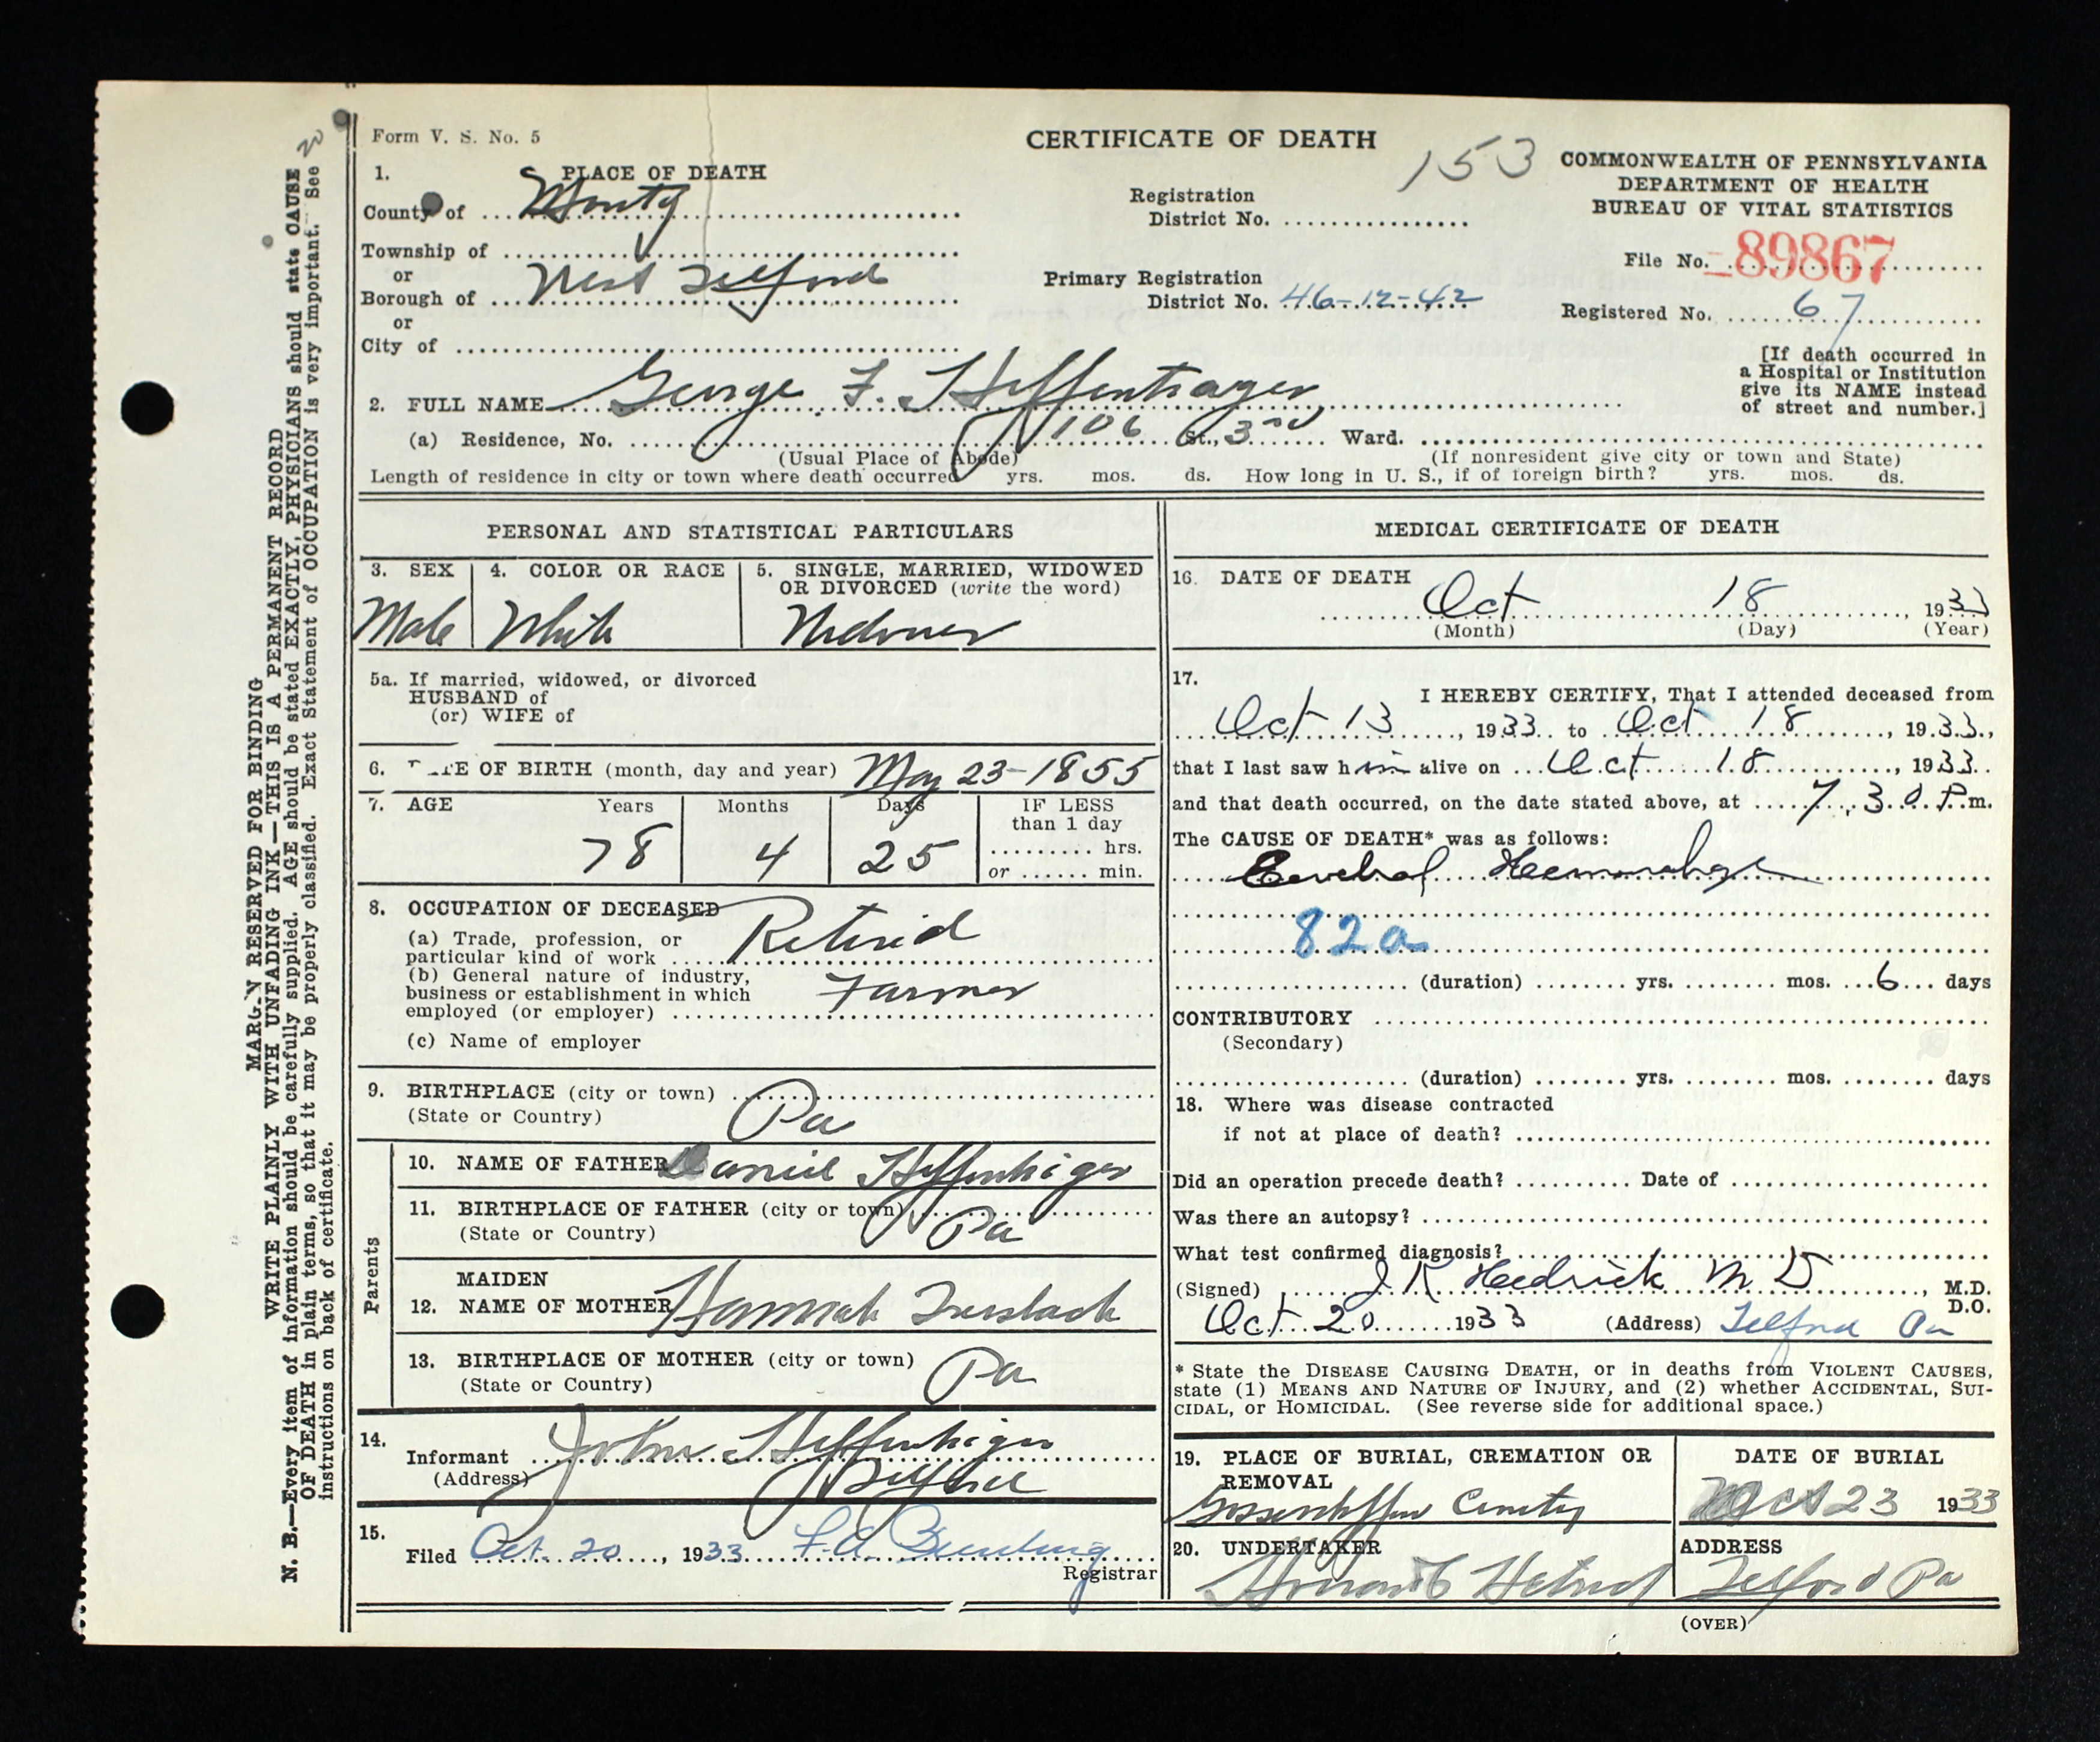 Form V. S. No. 5
CERTIFICATE OF DEATH
153
COMMONWEALTH OF PENNSYLVANIA
DEPARTMENT OF HEALTH
BUREAU OF VITAL STATISTICS
1. PLACE OF DEATH
County of Montg
Township of
or
Borough of West Telford
or
City of
Registration
District No.
Primary Registration
District No. 46-12-42
File No. 89867
Registered No. 67
[If death occurred in
a Hospital or Institution
give its NAME instead
of street and number.]
2. FULL NAME George F. Heffentrager
(a) Residence, No. 106 St., 3rd Ward.
(Usual Place of Abode)
(If nonresident give city or town and State)
Length of residence in city or town where death occurred yrs. mos. ds. How long in U. S., if of foreign birth? yrs. mos. ds.
PERSONAL AND STATISTICAL PARTICULARS
3. SEX
Male
4. COLOR OR RACE
White
5. SINGLE, MARRIED, WIDOWED
OR DIVORCED (write the word)
Widower
5a. If married, widowed, or divorced
HUSBAND of
(or) WIFE of
6. DATE OF BIRTH (month, day and year) May 23-1855
7. AGE Years Months Days
78 4 25
IF LESS
than 1 day
hrs.
or min.
8. OCCUPATION OF DECEASED
(a) Trade, profession, or
particular kind of work Retired
(b) General nature of industry,
business or establishment in which
employed (or employer) Farmer
(c) Name of employer
9. BIRTHPLACE (city or town)
(State or Country) Pa
Parents
10. NAME OF FATHER Daniel Heffenhiger
11. BIRTHPLACE OF FATHER (city or town)
(State or Country) Pa
MAIDEN
12. NAME OF MOTHER Hannah
13. BIRTHPLACE OF MOTHER (city or town)
(State or Country) Pa
14.
Informant John Heffenhiger
(Address) Telford
15.
Filed Oct. 20, 1933
Registrar
MEDICAL CERTIFICATE OF DEATH
16. DATE OF DEATH
Oct 18, 1933
(Month) (Day) (Year)
17.
I HEREBY CERTIFY, That I attended deceased from
Oct 13, 1933 to Oct 18, 1933,
that I last saw him alive on Oct 18, 1933
and that death occurred, on the date stated above, at 7.30 P.m.
The CAUSE OF DEATH* was as follows:
Cerebral Hemorrhage
82a
(duration) yrs. mos. 6 days
CONTRIBUTORY
(Secondary)
(duration) yrs. mos. days
18. Where was disease contracted
if not at place of death?
Did an operation precede death? Date of
Was there an autopsy?
What test confirmed diagnosis?
(Signed) J R Hedrick M D, M.D.
D.O.
Oct 20 1933 (Address) Telford Pa
* State the DISEASE CAUSING DEATH, or in deaths from VIOLENT CAUSES,
state (1) MEANS AND NATURE OF INJURY, and (2) whether ACCIDENTAL, SUI-
CIDAL, or HOMICIDAL. (See reverse side for additional space.)
19. PLACE OF BURIAL, CREMATION OR
REMOVAL
DATE OF BURIAL
Oct 23 1933
20. UNDERTAKER
ADDRESS
Telford Pa
(OVER)
MARGIN RESERVED FOR BINDING
WRITE PLAINLY WITH UNFADING INK—THIS IS A PERMANENT RECORD
N. B.—Every item of information should be carefully supplied. AGE should be stated EXACTLY, PHYSICIANS should state CAUSE
OF DEATH in plain terms, so that it may be properly classified. Exact Statement of OCCUPATION is very important. See
instructions on back of certificate.
20